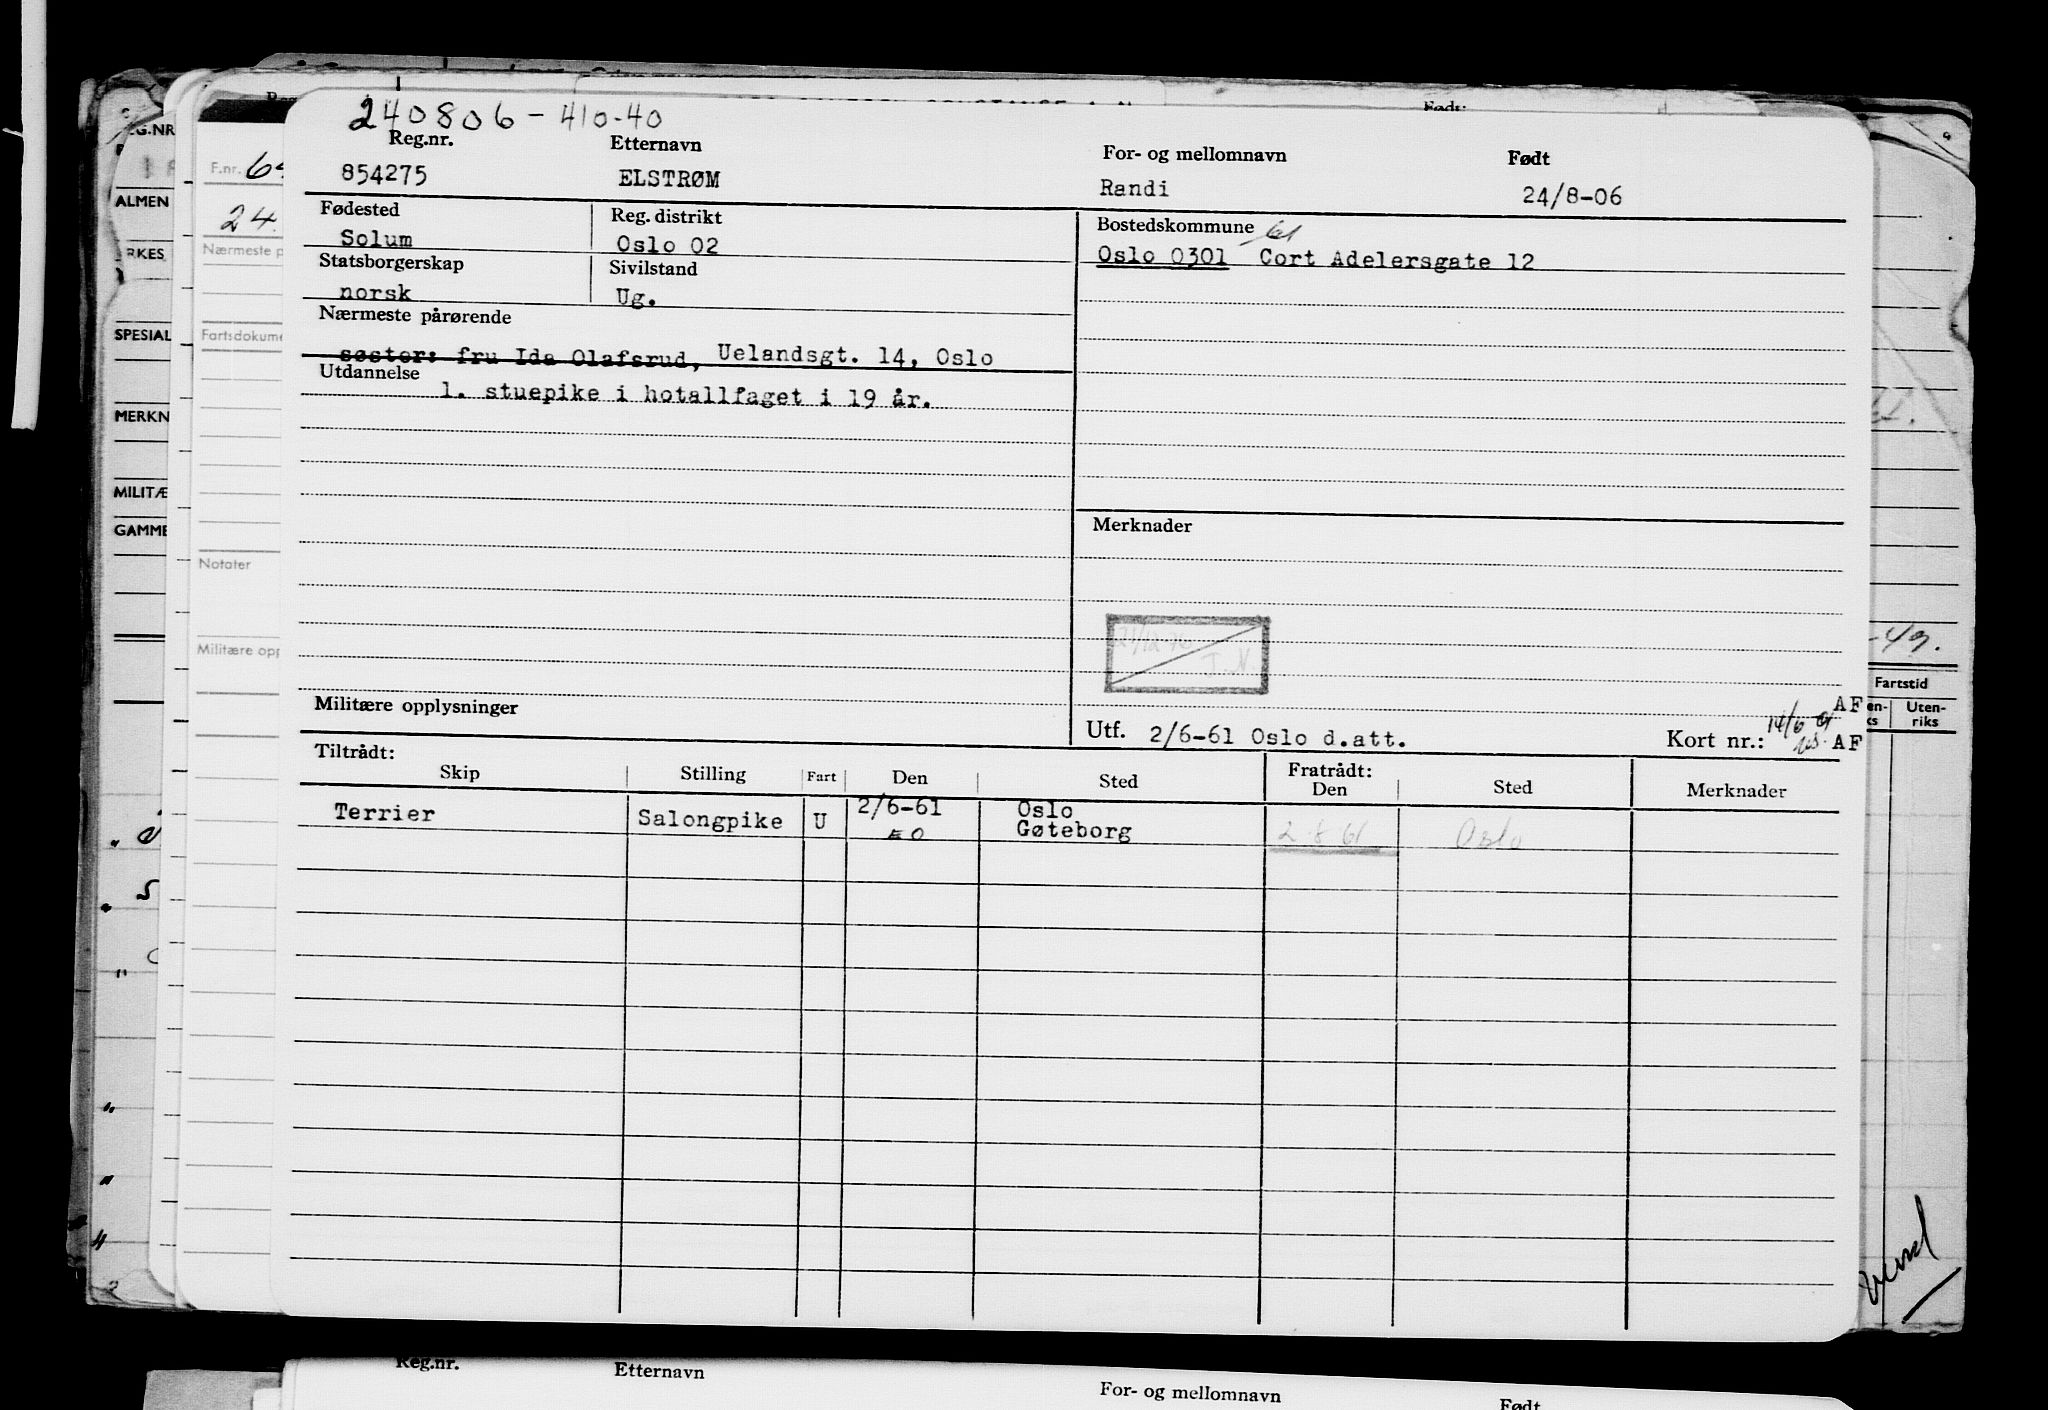 240806-410-40
Reg.nr. Etternavn For- og mellomnavn Født
854275 ELSTRØM Randi 24/8-06
Fødested Reg. distrikt Bostedskommune 61
Solum Oslo 02 Oslo 0301 Cort Adelersgate 12
Statsborgerskap Sivilstand
norsk Ug.
Nærmeste pårørende
søster: fru Ida Olafsrud, Uelandsgt. 14, Oslo
Utdannelse
1. stuepike i hotallfaget i 19 år.
Merknader
21/12-76
J.N.
Militære opplysninger
Utf. 2/6-61 Oslo d.att. Kort nr.: 14/6 61
AF
AF
Tiltrådt: Fratrådt:
Skip Stilling Fart Den Sted Den Sted Merknader
Terrier Salongpike U 2/6-61 Oslo 2.8 61 Oslo
Gøteborg
REG.NR
ALMEN
RKES
SPESIAL
MERKN
MILITÆ
GAMME
F.nr.
24.
Nærmeste p
Fartsdokume
Notater
Militære opp
Født:
-49.
Fartstid
Uten-
riks
Reg.nr. Etternavn For- og mellomnavn Født